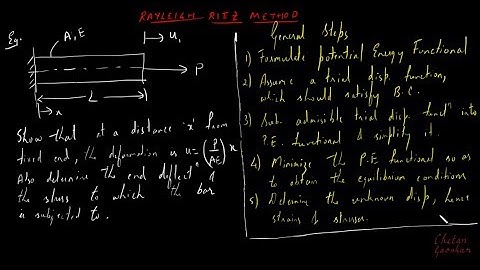 RAYLEIGH RITZ METHOD
Eg.
A, E
u₁
P
L
x
Show that at a distance 'x' from
fixed end, the deformation is u = (P/AE) x
Also determine the end deflectⁿ &
the stress to which the bar
is subjected to.
General Steps
1) Formulate potential Energy Functional
2) Assume a trial disp. function,
which should satisfy B.C.
3) Sub. admissible trial disp. functⁿ into
P.E. functional & simplify it.
4) Minimize the P.E functional so as
to obtain the equilibrium conditions
5) Determine the unknown disp, hence
strains & stresses.
Chetan